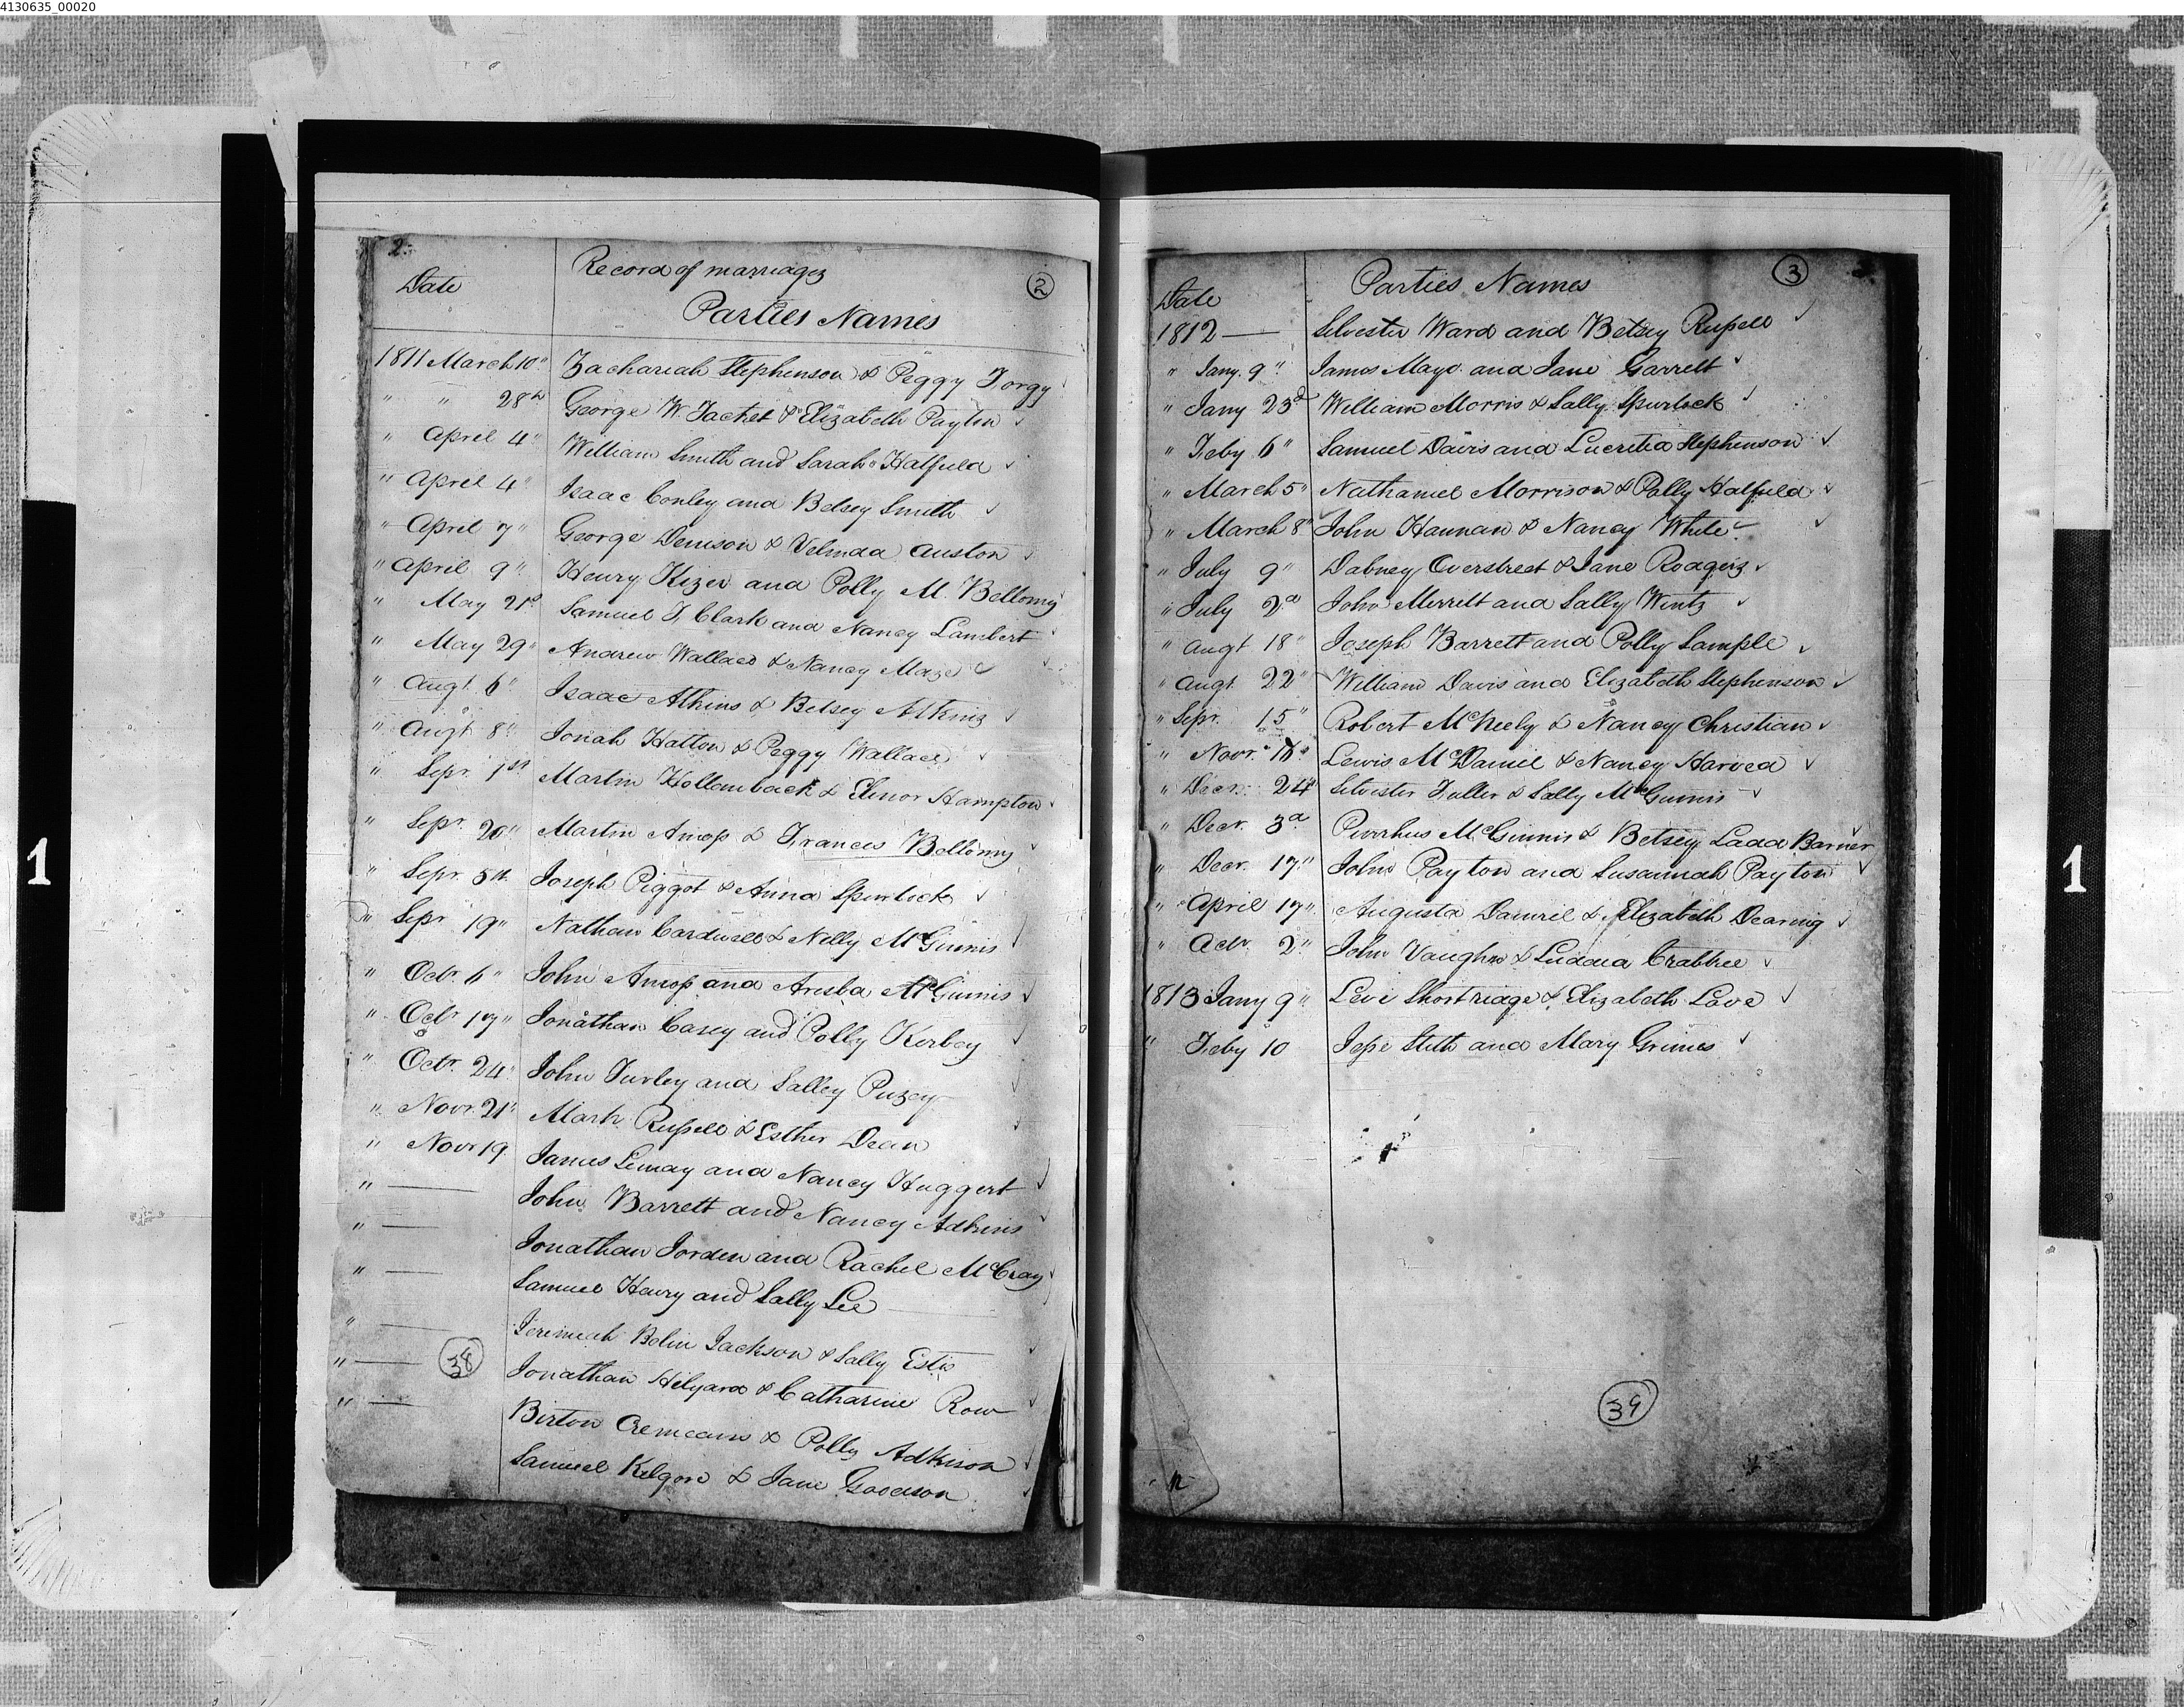 4130635_00020
2
Record of marriages
2
Date
Parties Names
1811 March 10" Zachariah Stephenson & Peggy Torgy
" " 28th George W. Tacket & Elizabeth Payton
" April 4" William Smith and Sarah Hatfield
" April 4" Isaac Conley and Betsey Smith
" April 7" George Denison & Velinda Auston
" April 9" Henry Kizer and Polly M. Bellomy
" May 21st Samuel T. Clark and Nancy Lambert
" May 29" Andrew Wallace & Nancy Maze
" Augt 6" Isaac Atkins & Betsey Atkins
" Augt 8" Jonah Hatton & Peggy Wallace
" Sepr 1st Martin Hollenback & Elenor Hampton
" Sepr 20" Martin Amoss & Frances Bellomy
" Sepr 5th Joseph Piggot & Anna Spurlock
" Sepr 19" Nathan Cardwell & Nelly McGinnis
" Octr 6" John Amoss and Aresba McGinnis
" Octr 17" Jonathan Casey and Polly Kerbey
" Octr 24" John Turley and Salley Puzey
" Novr 21st Mark Russell & Esther Dean
" Novr 19 James Lemay and Nancy Huggert
" — John Barrett and Nancy Adkins
" — Jonathan Jorden and Rachel McCray
" — Samuel Henry and Sally Lee
" — Jeremiah Bolin Jackson & Sally Estis
" — Jonathan Hilyard & Catharine Row
" — Birton Cremeans & Polly Adkison
Samuel Kilgore & Jane Gooderson
38
Date Parties Names 3
1812 — Silvester Ward and Betsey Russell
" Jany. 9" James Mayo and Jane Garrett
" Jany 23d William Morris & Sally Spurlock
" Feby 6" Samuel Davis and Lucretia Stephenson
" March 5" Nathaniel Morrison & Polly Hatfield
" March 8" John Hannan & Nancy White
" July 9" Dabney Overstreet & Jane Rodgers
" July 2d John Merrett and Sally Wintz
" Augt 18" Joseph Barrett and Polly Sample
" Augt. 22" William Davis and Elizabeth Stephenson
" Sepr. 15" Robert McNeely & Nancy Christian
" Novr. Lewis McDaniel & Nancy Harved
" Decr. 24" Silvester Fuller & Sally McGinnis
" Decr. 3d Pirrhus McGinnis & Betsey Ladd Barner
" Decr. 17" John Payton and Susannah Payton
" April 17" Augusta Dawril & Elizabeth Dearing
" Octr. 2" John Vaughn & Crabtree
1813 Jany 9" Levi Shortridge & Elizabeth Love
" Feby 10 Jesse Stith and Mary Grimes
39
1
1